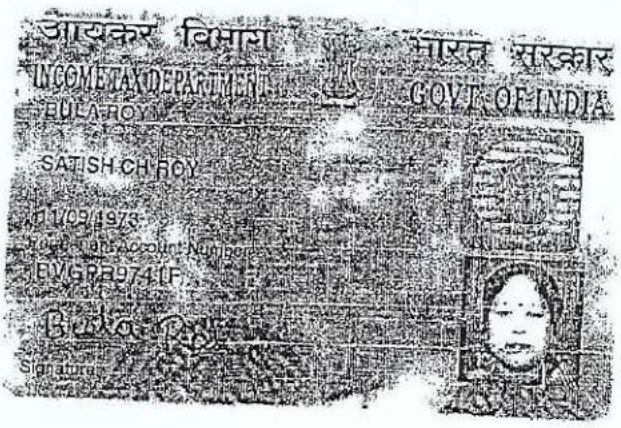 आयकर विभाग
भारत सरकार
INCOME TAX DEPARTMENT
GOVT. OF INDIA
BULA ROY
SATISH CH ROY
11/09/1973
Permanent Account Number
Bula Roy
Signature